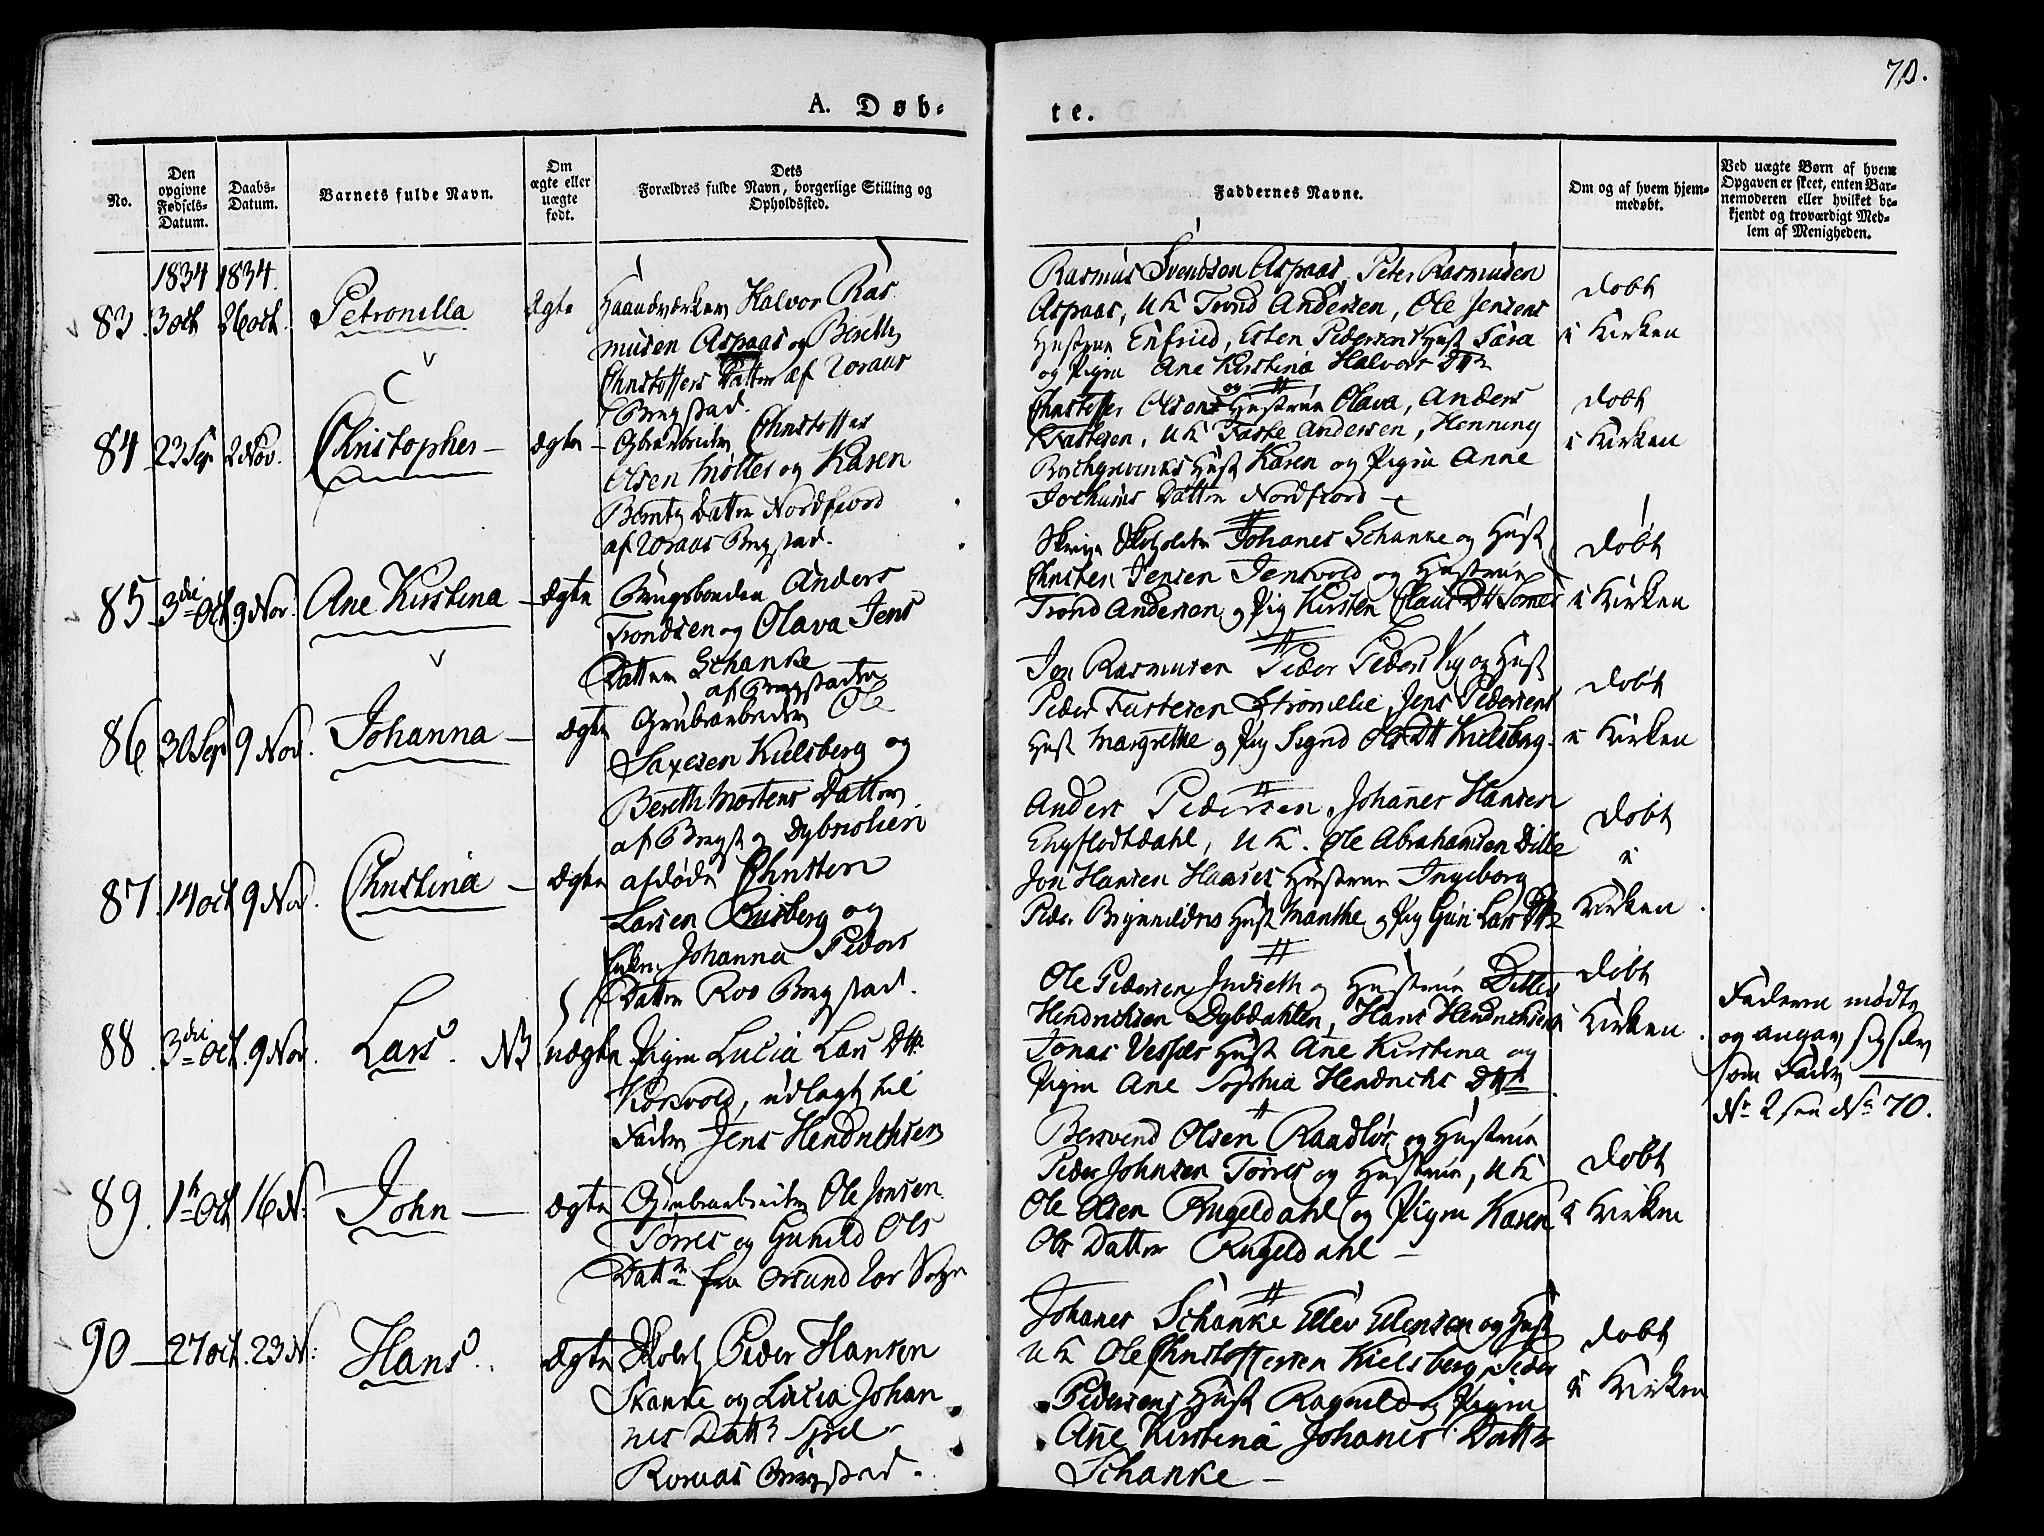 70.
A. Døb-
te.
No.
Den opgivne Fødsels-Datum.
Daabs-Datum.
Barnets fulde Navn.
Om ægte eller uægte født.
Dets Forældres fulde Navn, borgerlige Stilling og Opholdssted.
Faddernes Navne.
Om og af hvem hjem-medøbt.
Ved uægte Børn af hvem Opgaven er skeet, enten Bar-nemoderen eller hvilket be-kjendt og troværdigt Med-lem af Menigheden.
1834 1834.
83. 3 oct 26 oct. Petronilla Ægte
Haandværker Halvor Ras
musen Aspaas og Bereth
Christoffers Datter af Roraas
Bergstad.
Rasmus Svendsen Aspaas, Peter Rasmusen
Aspaas, UK Trond Andersen, Ole Jensens
Hustrue Enfried, Esten Pedersens Hust Sara
og Pigen Ane Kirstina Halvors Dtr
døbt
i Kirken
84 23 Sep 2 Nov. Christopher - Ægte -
Grubearbeider Christoffer
Olsen Møller og Karen
Bernts Datter Nordfiord
af Roraas Bergstad.
Christoffer Olsen og Hustrue Olava, Anders
UK Faste Andersen, Henning
Borchgrevinks Hust Karen og Pigen Anne
Jochums Datter Nordfiord -
døbt
i Kirken
85 3die Oct. 9 Nov. Ane Kirstina - Ægte
Brugsbonden Anders
Trondsen og Olava Jens
Datter Schanke
af Bergstaden
Johanes Schanke og Hust
Christen Jensen Jensvold og Hustrue
Trond Andersen og Pig Kirsten Claus Dtt
døbt
i Kirken
86 30 Sep 9 Nov. Johanna - Ægte
Grubearbeider Ole
Saxesen Kielsberg og
Bereth Mortens Datter
af Bergst og
Jon Rasmusen Peder Peders Vig og Hust
Peder Fastesen Strømelie, Jens Pedersens
Hust Margrethe og Pig Signd Ols Dtt Kielsberg.
døbt
i Kirken
87. 14 oct 9 Nov. Christina - Ægte
afdøde Christen
Larsen Riisberg og
Enken Johanna Peders
Datter Roo Bergstad.
Anders Pedersen, Johanes Hansen
Engflodtdahl, UK. Ole Abrahamsen Dille
Jon Hansen Hustrue Ingeborg
Peder Brynnildres Hust Marithe og Pig Guri Lars Dtr
døbt
i
Kirken
88 3die Oct. 9 Nov. Lars. NB uægte
Pigen Lucia Lars Dtr
Korsvold, udlagt til
Fader Jens Hendrichsen
Ole Pedersen og Hustrue
Hendrichsen Dybdahlen, Hans Hendrichsen
Jonas Hust Ane Kirstina og
Pigen Ane Sophia Hendrichs Dtr
døbt
i Kirken.
Faderen mødte
og angav sig selv
som Fader
No 2 see No 70.
89. 1te Oct 16 N: John - Ægte
Grubearbeider Ole Jonsen
Tørres og Gunild Ols
Datter fra
Bersvend Olsen Raadlos og Hustrue
Peder Johnsen Tørres og Hustrue, UK
Ole Olsen Rugeldahl og Pigen Karen
Ols Datter Rugeldahl -
døbt
i Kirken
90 - 27 oct. 23 N: Hans. Ægte
Peder Hansen
Skanke og Lucia Johan
nes Datt
Roraas Bergstad.
Johanes Schanke Ellev Ellensen og Hust
UK Ole Christoffersen Kielsberg, Peder
Pedersens Hust Ragnild og Pigen
Ane Kirstina Johanes Datter
Schanke -
døbt
i Kirken